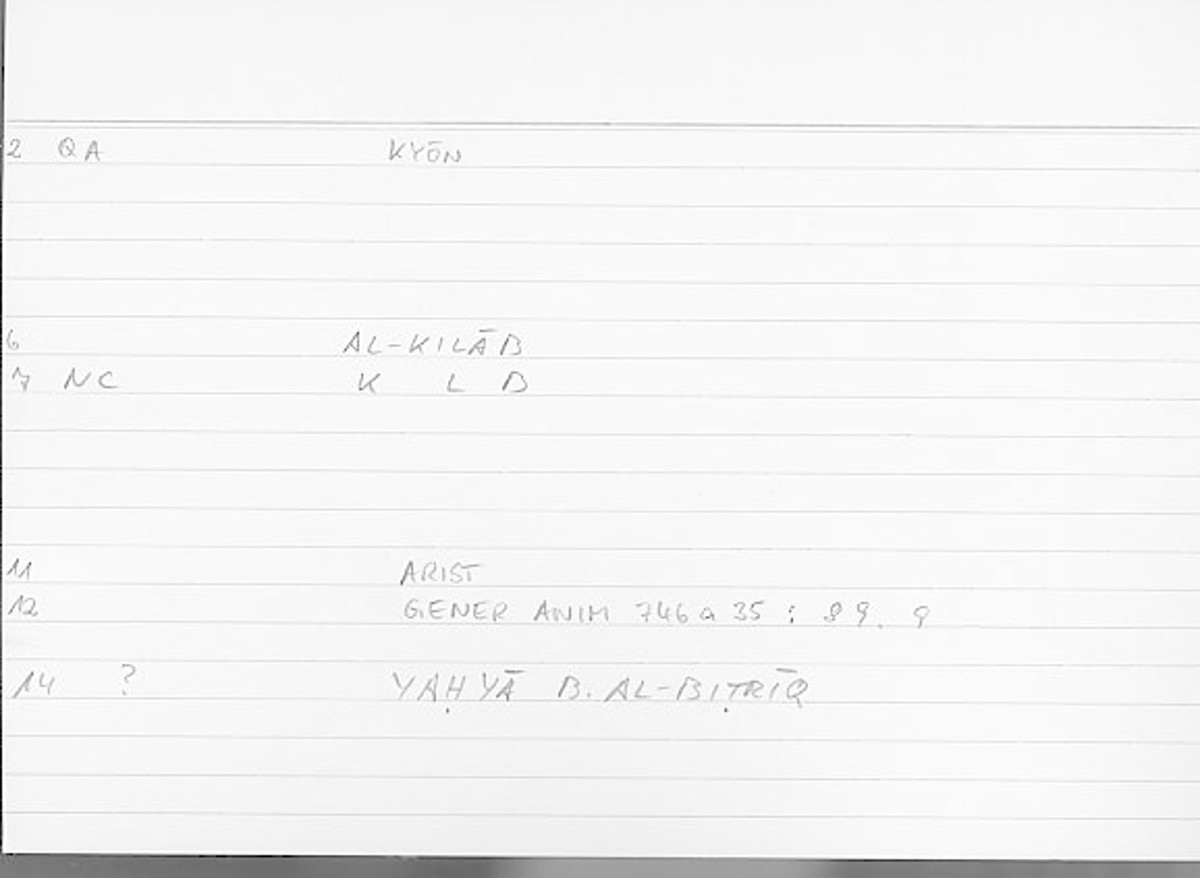 2 QA KYŌN
6 AL-KILĀB
7 NC K L B
11 ARIST
12 GENER ANIM 746 a 35 : 89. 9
14 ? YAḤYĀ B. AL-BIṬRĪQ